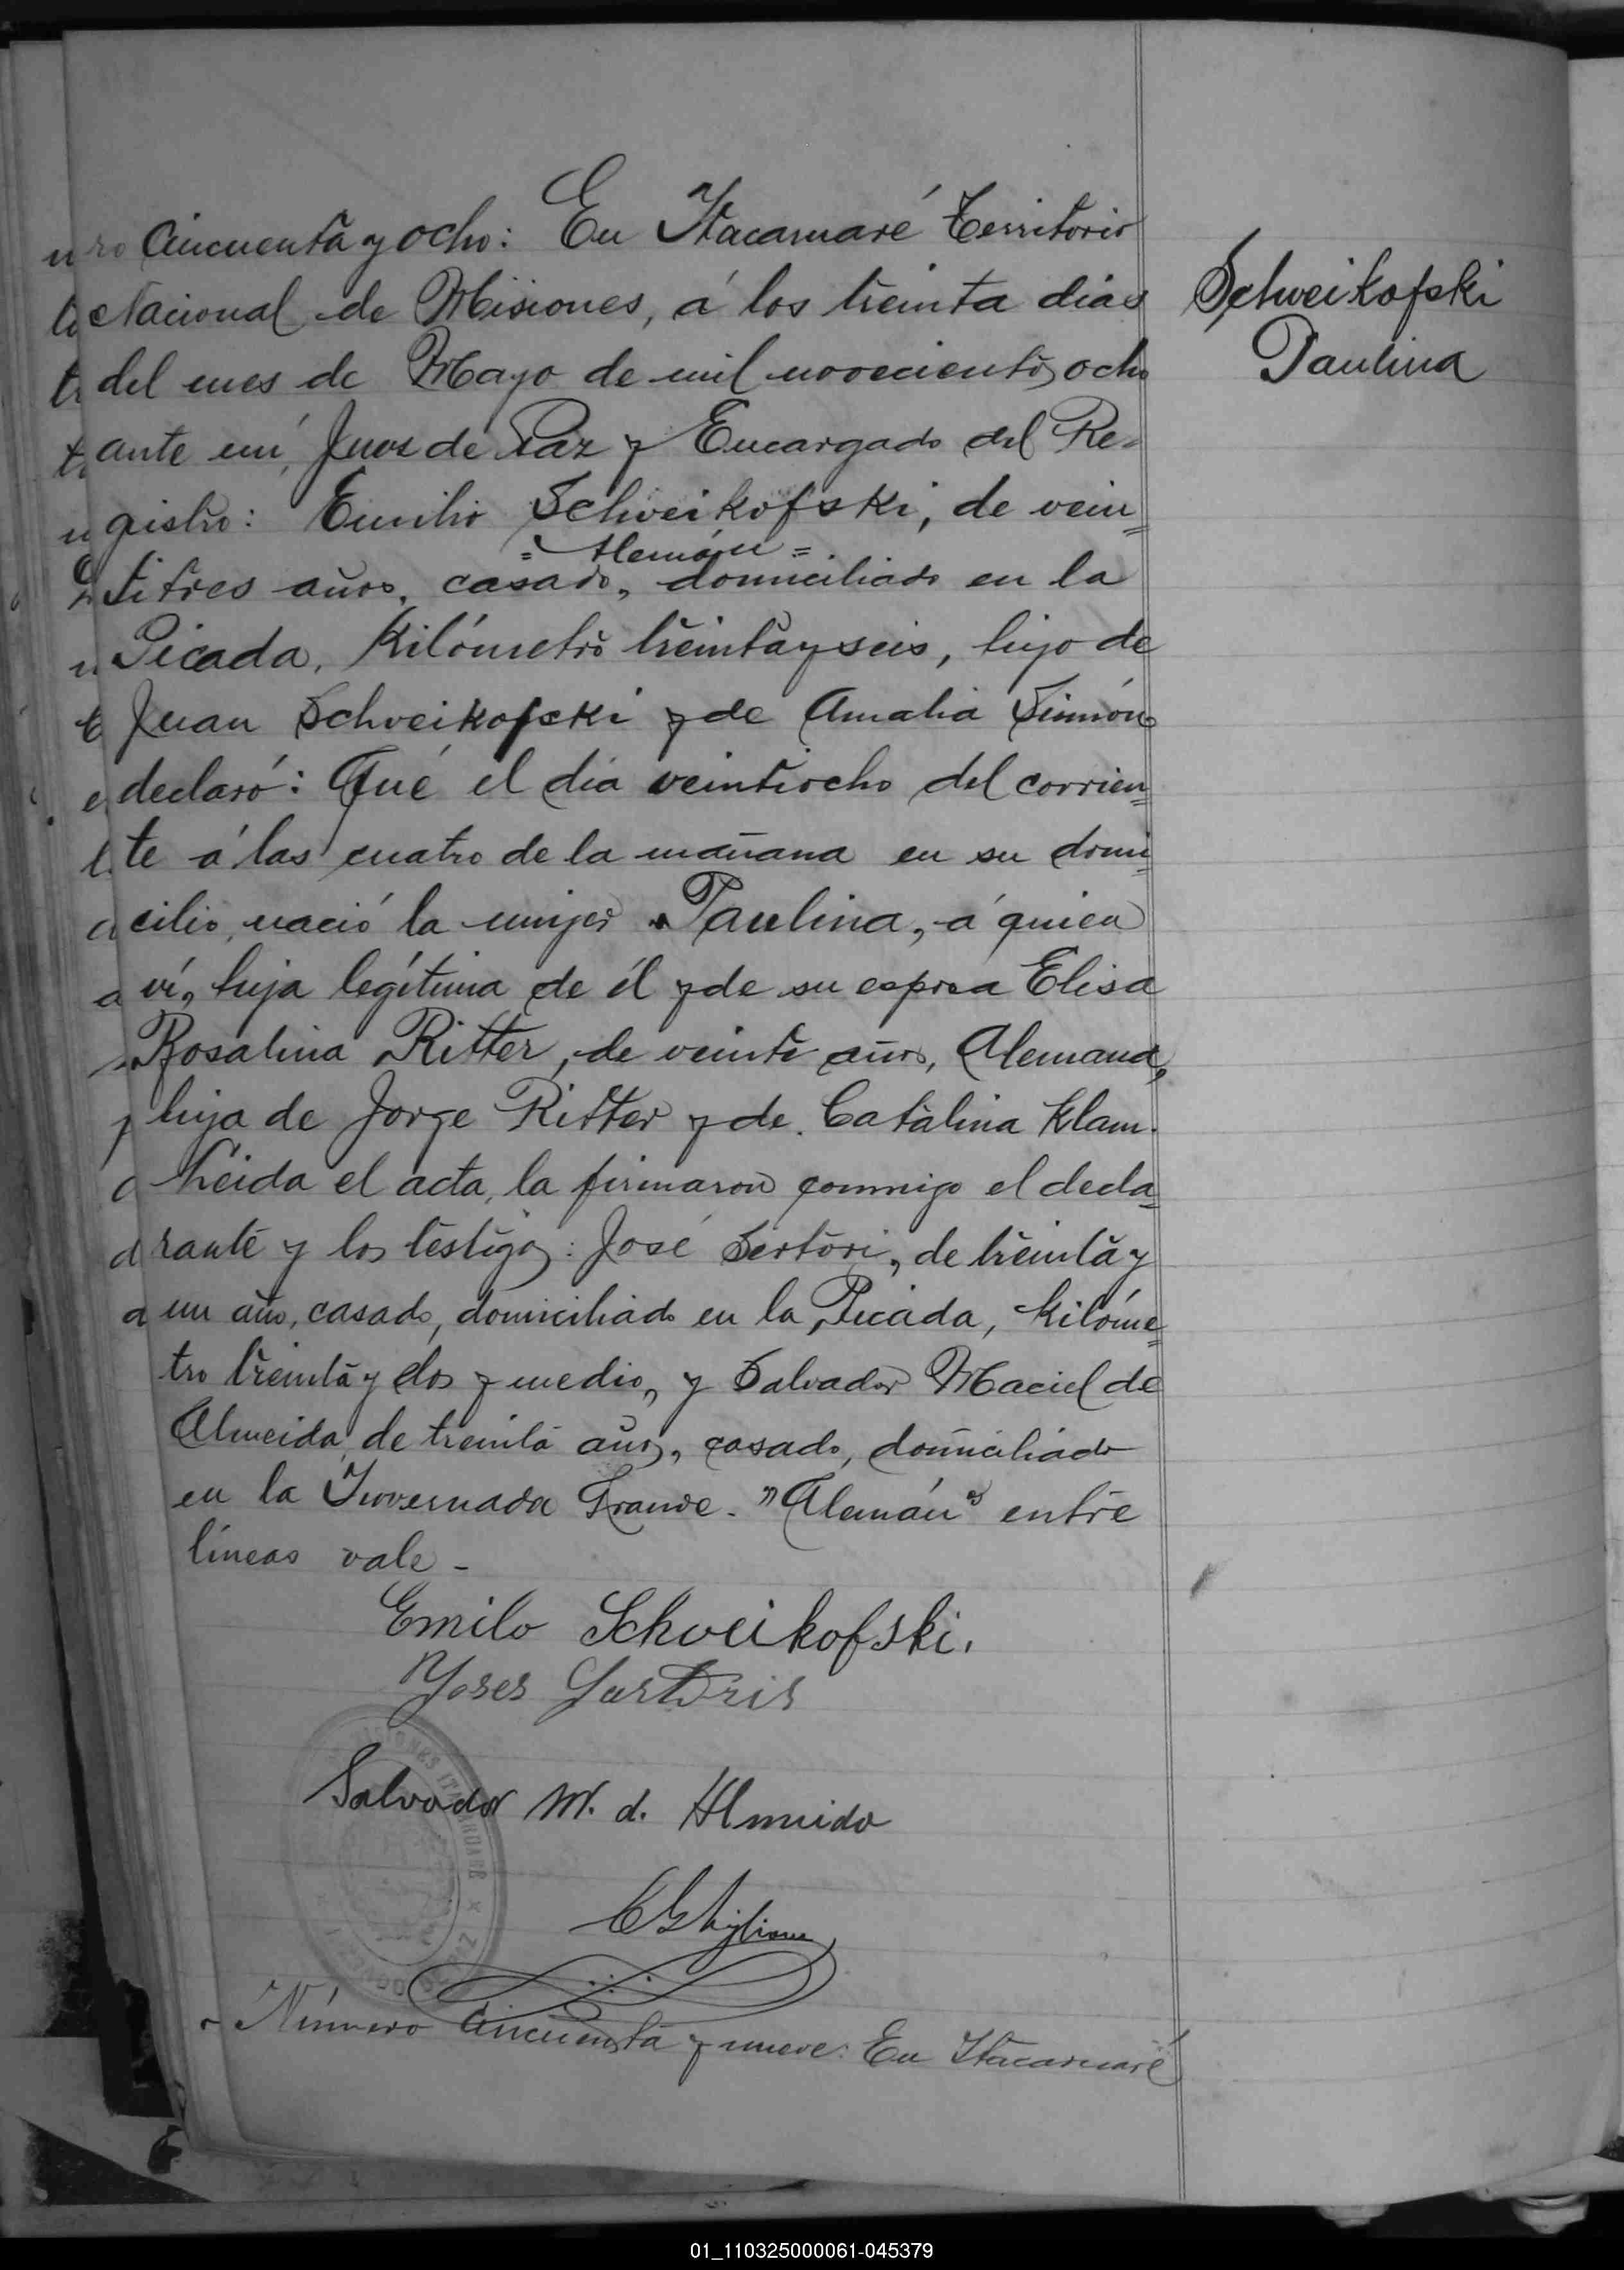 Cincuenta y ocho: En Itacaruaré Territorio
Nacional de Misiones, á los treinta dias
del mes de Mayo de mil novecientos ocho
ante mí, Juez de Paz y Encargado del Re-
gistro: Emilio Schweikofski, de vein=
= Alemán =
titres años, casado, domiciliado en la
Picada, Kilómetro treinta y seis, hijo de
Juan Schveikofski y de Amalia Simón
declaró: Qué el día veintiocho del corrien=
te á las cuatro de la mañana en su domi=
cilio, nació la mujer Paulina, á quien
ví, hija legítima de él y de su esposa Elisa
Rosalina Ritter, de veinte años, Alemana,
hija de Jorge Ritter y de Catalina Klam.
Leida el acta, la firmaron conmigo el decla=
rante y los testigos: José Sertori, de treinta y
un año, casado, domiciliado en la Picada, Kilóme=
tro treinta y dos y medio, y Salvador Maciel de
Almeida, de treinta años, casado, domiciliado
en la Invernada Grande. "Alemán" entre
líneas vale -
Emilo Schveikofski.
Salvador M. d. Almeido
Número Cincuenta y nueve: En Itacaruaré
Schweikofski
Paulina
01_110325000061-045379